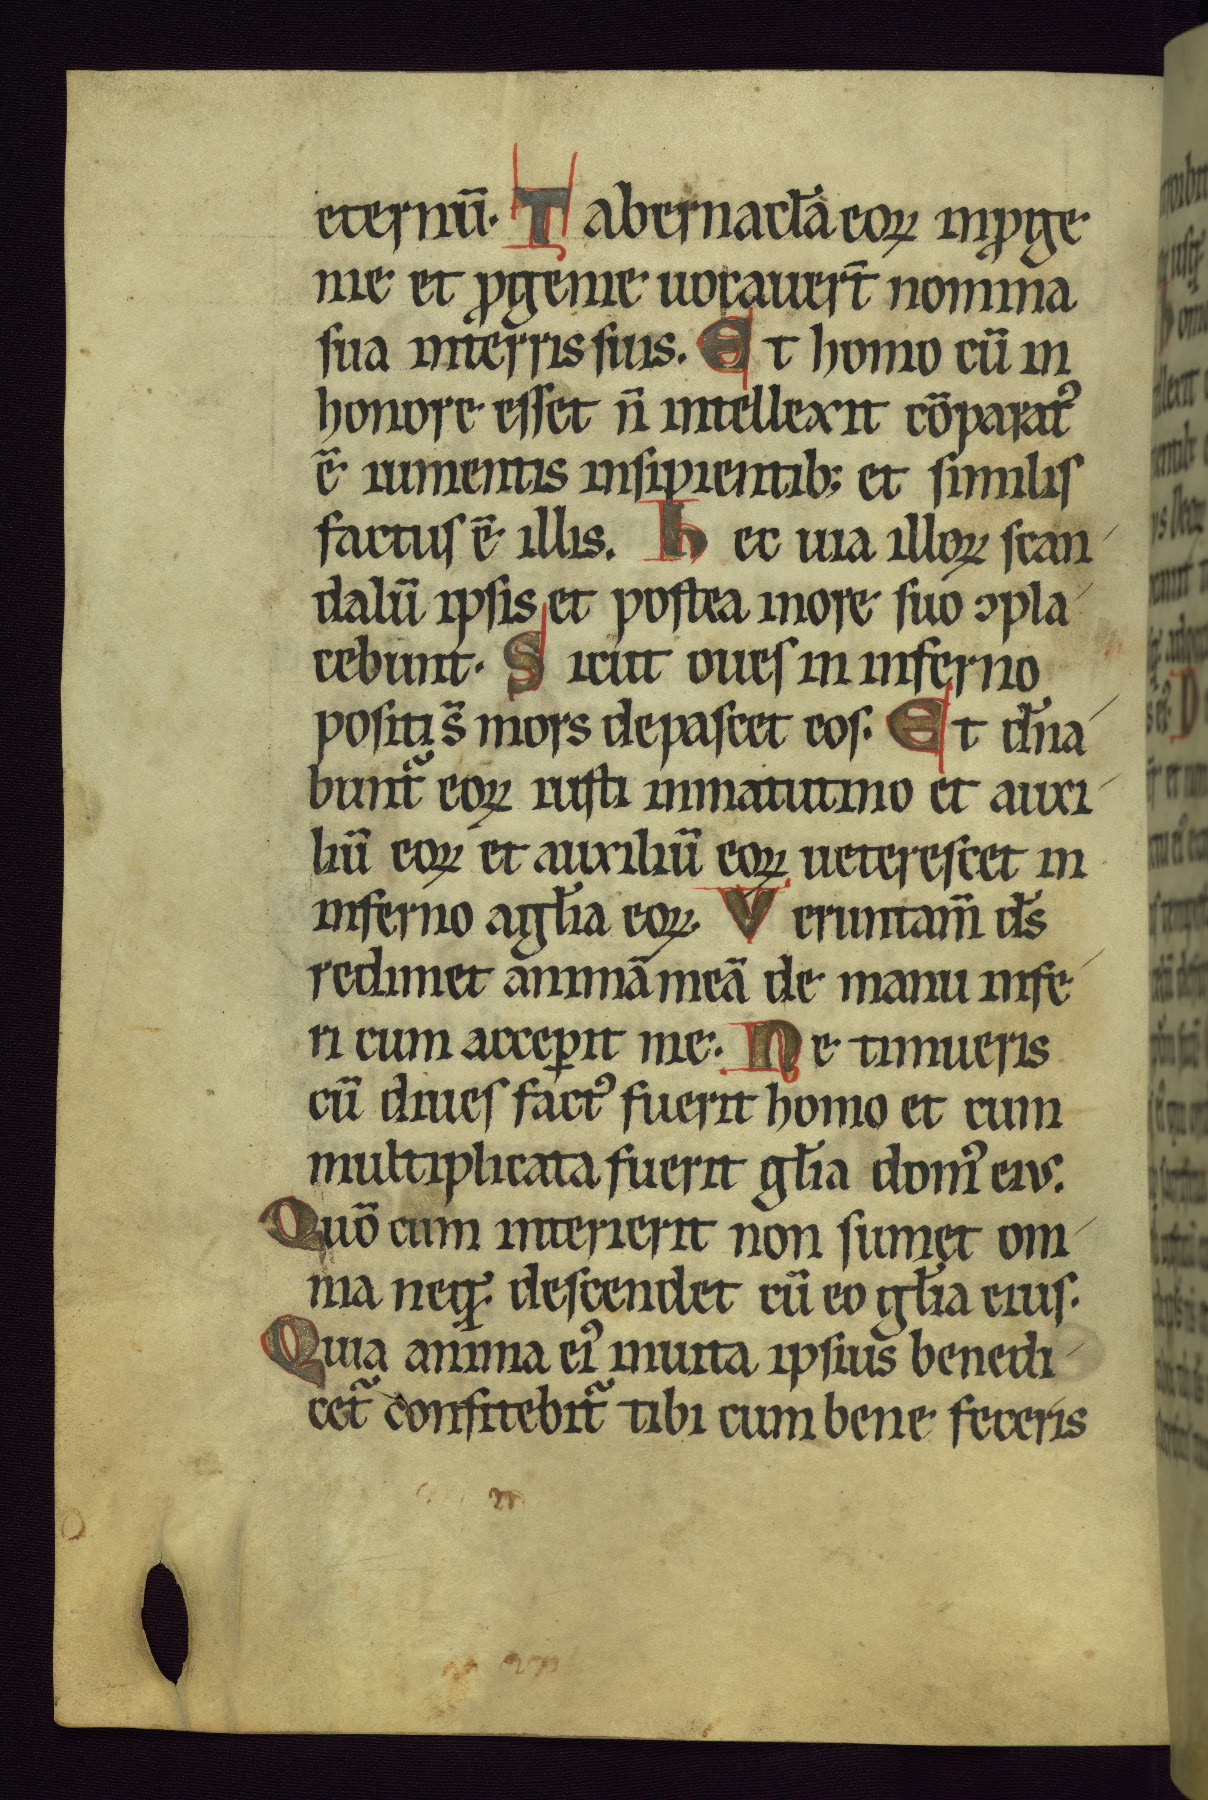 eternū. Tabernacl̄a eoꝝ in ꝓge
nie et ꝓgenie uocauer̄t nomina
sua in terris suis. Et homo cū in
honore esset n̄ intellexit cōparatꝰ
ē iumentis insipientib; et similis
factus ē illis. hec uia illoꝝ scan
dalū ipsis et postea in ore suo ↄpla
cebunt. Sicut oues in inferno
positi s̄ mors depascet eos. Et dn̄a
bunt᷑ eoꝝ iusti in matutino et auxi
liū eoꝝ et auxiliū eoꝝ ueterescet in
inferno a gl̄ia eoꝝ. Veruntam̄ ds̄
redimet animā meā de manu infe
ri cum acceꝑit me. Ne timueris
cū diues factꝰ fuerit homo et cum
multiplicata fuerit gl̄ia domꝰ eius.
Quō cum interierit non sumet om
nia neqꝫ descendet cū eo gl̄ia eius.
Quia anima eiꝰ in uita ipsius benedi
cet᷑ confitebit᷑ tibi cum bene feceris